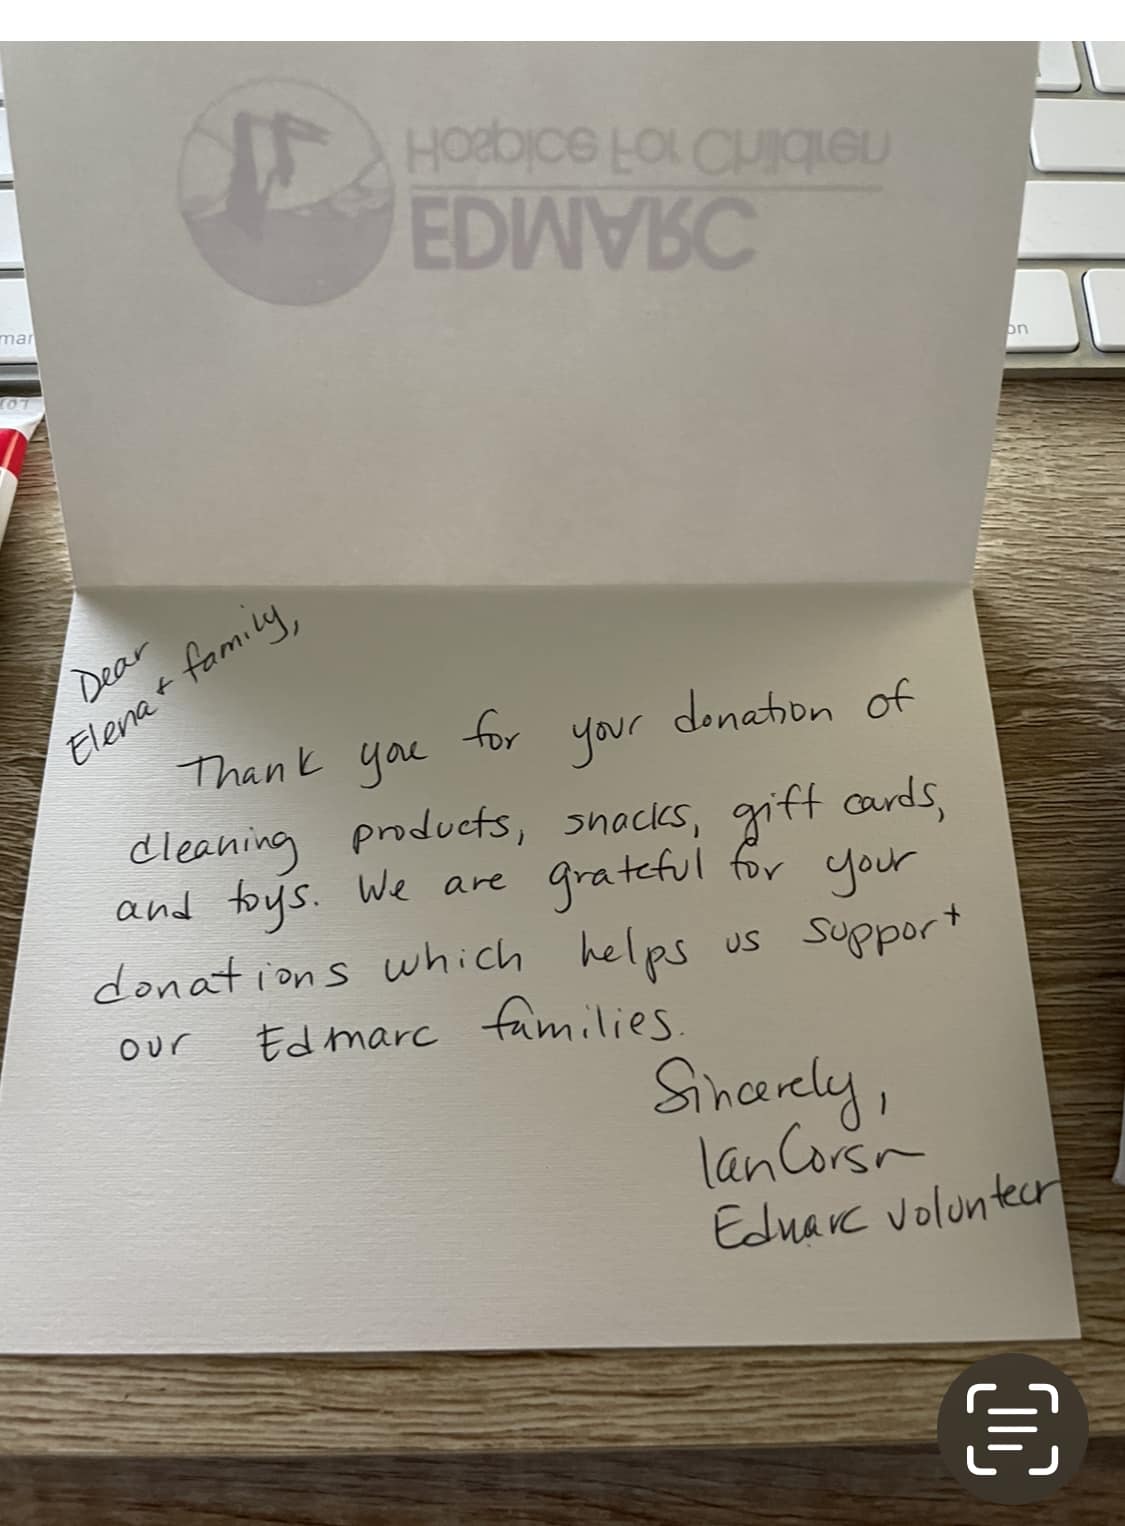 Hospice For Children
EDMARC
Dear
Elena + family,
Thank you for your donation of
cleaning products, snacks, gift cards,
and toys. We are grateful for your
donations which helps us support
our Edmarc families.
Sincerely,
Ian
Edmarc volunteer
on